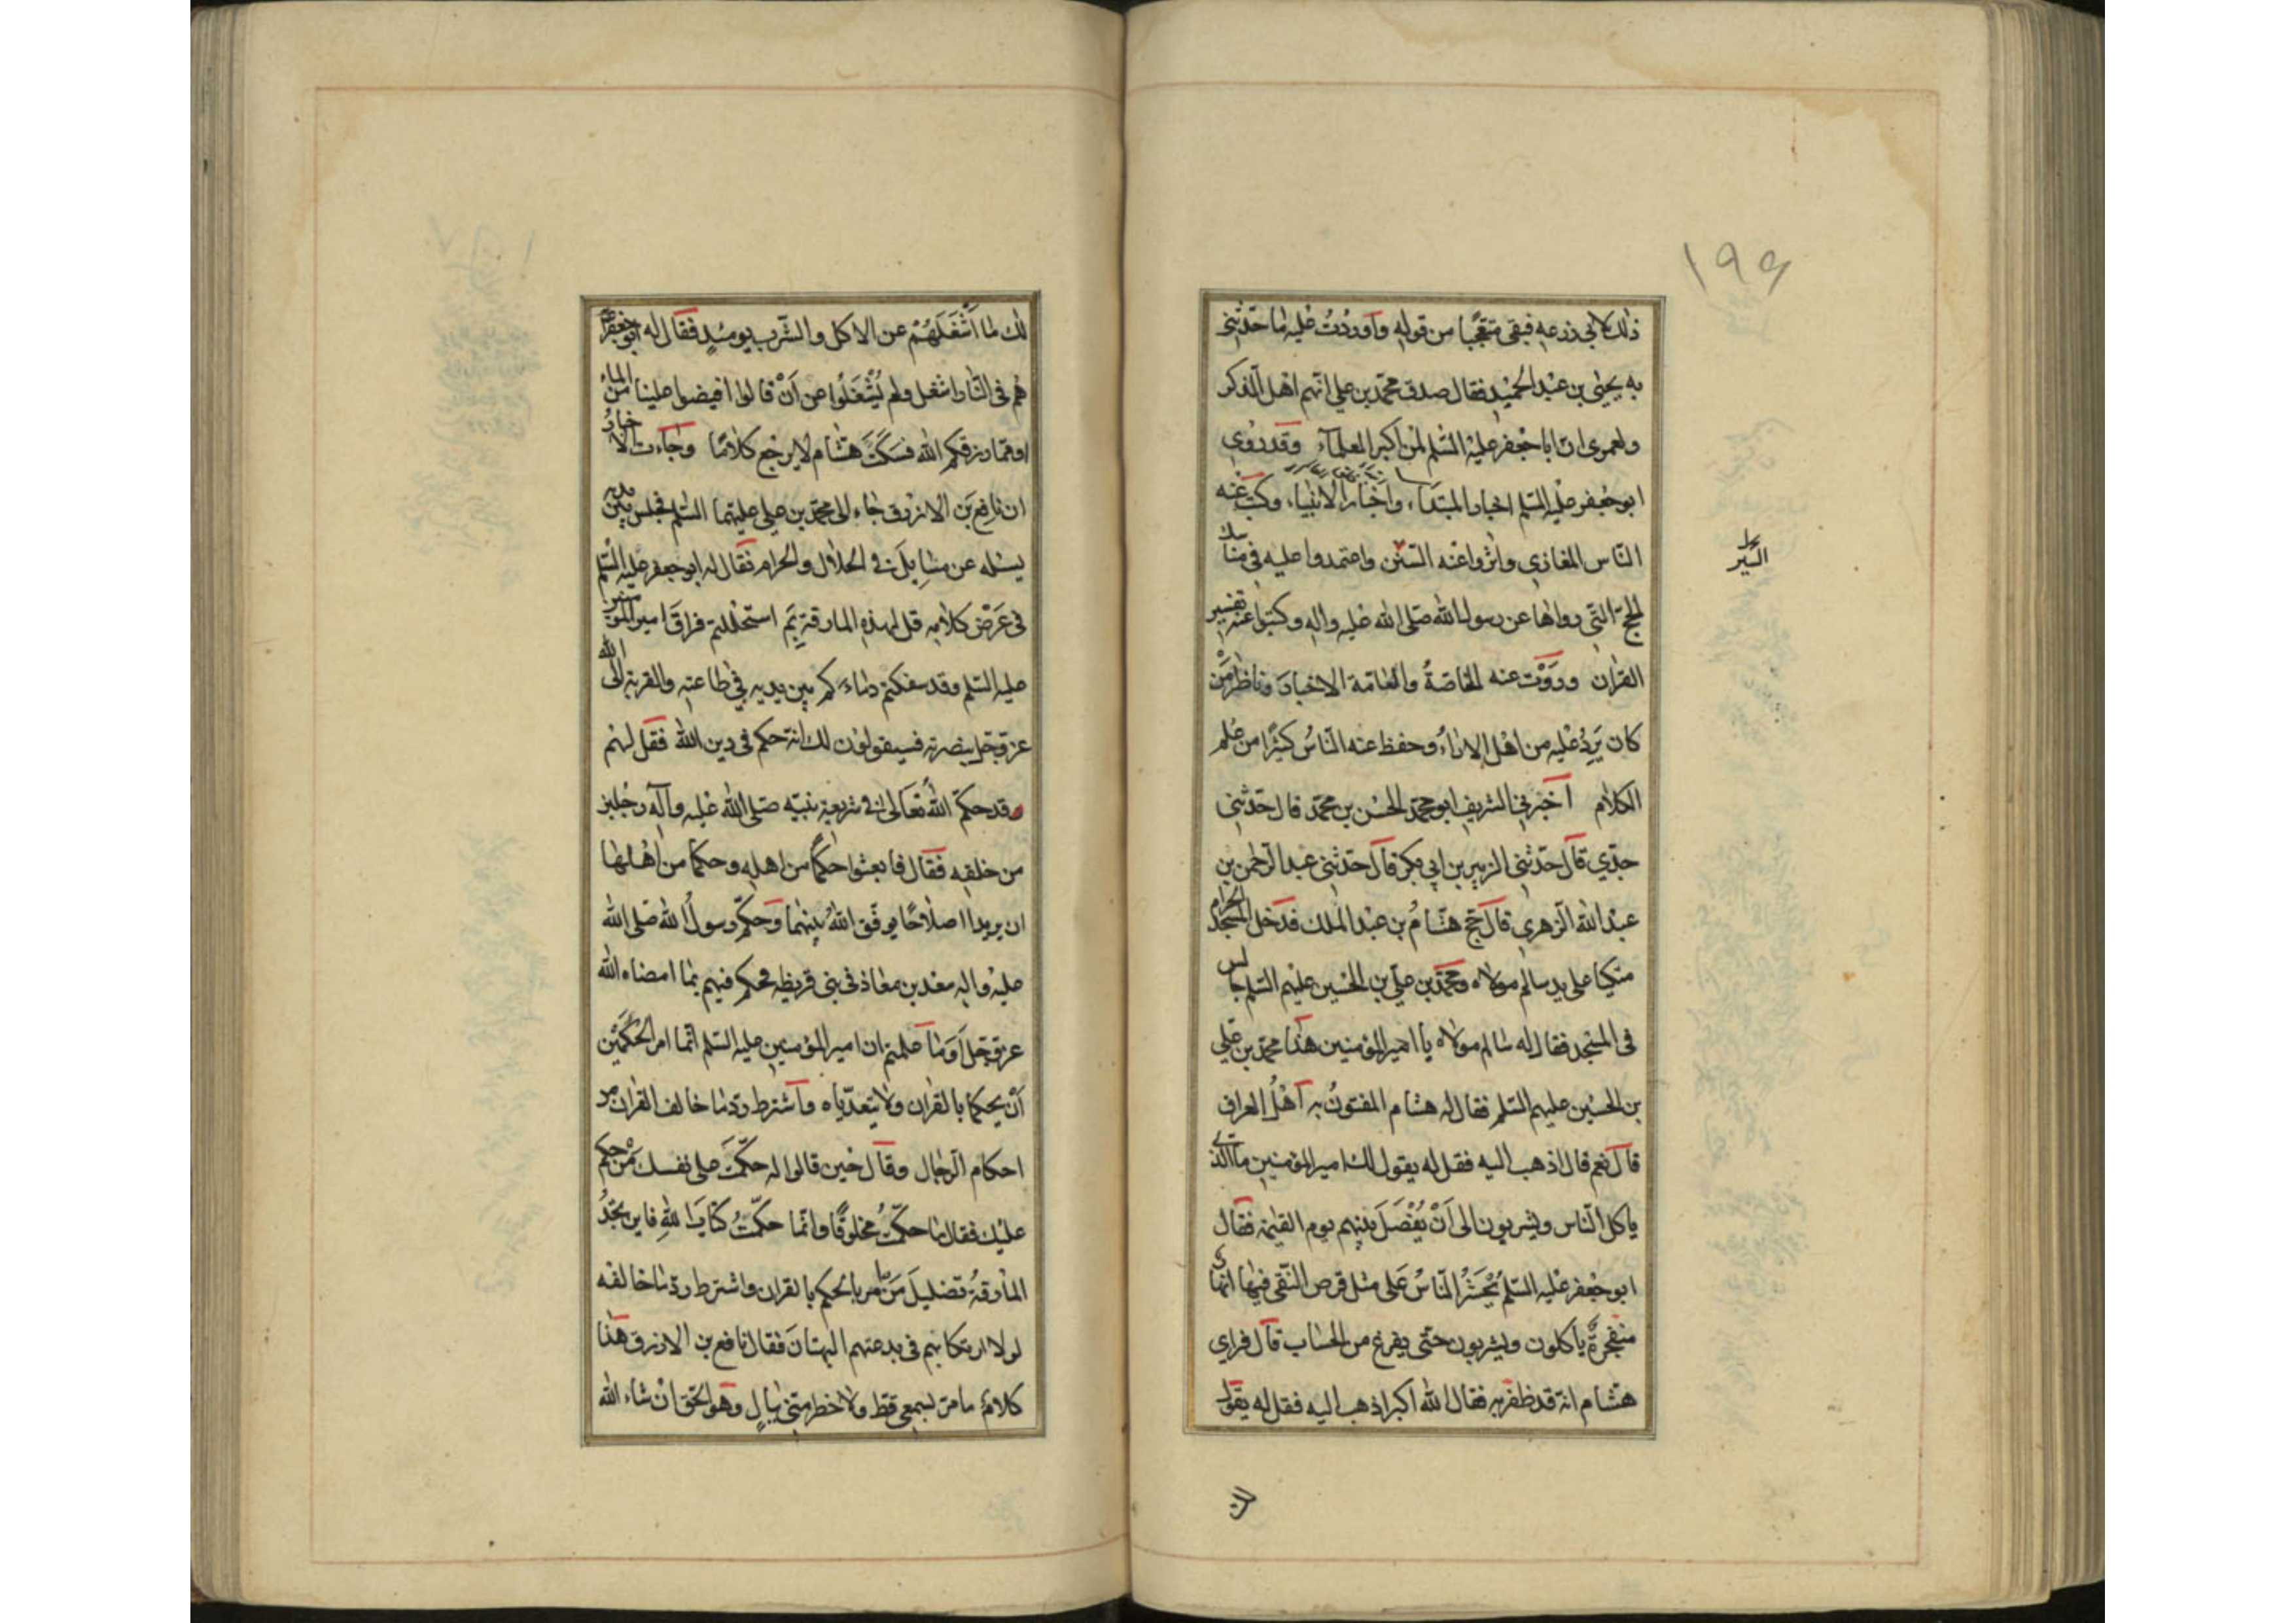 ۱۹۶
ذلك لابي زرعه فبقى متعجّبا من قوله وأوردْتُ عليه ما حدّثني
به يحيى بن عبد الحميد فقال صدق محمّد بن علي انّهم اهل الذكر
ولعمري انّ ابا جعفر عليه السّلم لمن اكبر العلمآء وقد روى
ابو جعفر عليه السّلم اخبار المبتدأ، واخبار الانبياء، وكتب عنه
النّاس المغازي واثروا عنه السّنن واعتمدوا عليه في مناسك
السّير
الحجّ التّي رواها عن رسول الله صلى الله عليه واله وكتبوا عنه تفسير
القرآن وروَوْت عنه الخاصّةُ والعامّة الاخبارَ وناظر مَن
كان يَرِدُ عليه من اهل الاراءِ وحفظ عنه النّاسُ كثيرًا من علم
الكلام أخبرني الشريف ابو محمّد الحسن بن محمّد قال حدّثني
جدّي قال حدّثني الزبير بن ابي بكر قال حدّثني عبد الرّحمن بن
عبد الله الزّهري قال حجّ هشامُ بن عبد الملك فدخل المسجد الحرام
متكيا على يد سالم مولاه ومحمّد بن عليّ بن الحسين عليهم السّلم جالس
في المسجد فقال له سالم مولاه يا امير المؤمنين هذا محمّد بن علي
بن الحسين عليهم السّلم فقال له هشام المفتونُ به أهْلُ العراق
قال نعم قال اذهب اليه فقل له يقول لك امير المؤمنين ما الّذي
ياكل النّاس ويشربون الى اَنْ يُفْصَلَ بينهم يوم القيٰمة فقال
ابو جعفر عليه السّلم يُحْشَرُ النّاسُ عَلى مثل قرص النّقي فيها انهار
متفجّرة ياكلون ويشربون حتّى يفرغ من الحساب قال فراي
هشام انّه قد ظفر به فقال الله اكبر اذهب اليه فقل له يقول
لك
لك ما اَشْغَلَهُمْ عن الاكل والشّرب يومئذٍ فقال له ابو جعفر
هم في النّار اشغل ولم يُشْغَلُوا عن اَنْ قالوا افيضوا علينا من الماء
او ممّا رزقكم الله فسكَتَ هشام لا يرجع كلامًا وجاءت الاخبارُ
ان نافع بن الازرق جاء الى محمّد بن علي عليهما السّلم فجلس بين يديه
يسئله عن مسايل في الحلال والحرام فقال له ابو جعفر عليه السّلم
في عَرْض كلامه قل لهذه المارقة بِمَ استحللتم فراقَ امير المؤمنين
عليه السّلم وقد سفكتم دماءكم بين يديه في طاعته والقربة الى الله
عزّ وجل بنصرته فسيقولون لك انّه حكم في دين الله فقل لهم
قد حكّم اللهُ تعالى في شريعة نبيّه صلّى الله عليه وآله رجلين
من خلقه فقال فابعثوا حكمًا من اهله وحكما من اهلها
ان يريدا اصلاحًا يوفّق اللهُ بينهما وَحكّم رسولُ الله صلى الله
عليه واله سعد بن معاذ في بني قريظه فحكم فيهم بما امضاه الله
عزّ وجل أوَما علمتم ان امير المؤمنين عليه السّلم انّما امر الحَكَمَيْن
اَنْ يحكما بالقران ولا يتعدّياه واشترط ردّ ما خالف القران من
احكام الرّجال وقال حين قالوا له حكّمتَ على نفسك مَنْ حكم
عليك فقال ما حكّمتُ مخلوقًا وانّما حكّمتُ كتابَ اللهِ فاين تجدُ
المارقةُ تضليلَ مَنْ امر بالحكم بالقران واشترط ردّ ما خالفه
لولا ارتكابهم في بدعتهم البهتانَ فقال نافع بن الازرق هذا
كلامٌ ما مرّ بسمعي قطّ ولا خطر منّي ببالٍ وهو الحقّ انْ شاء الله